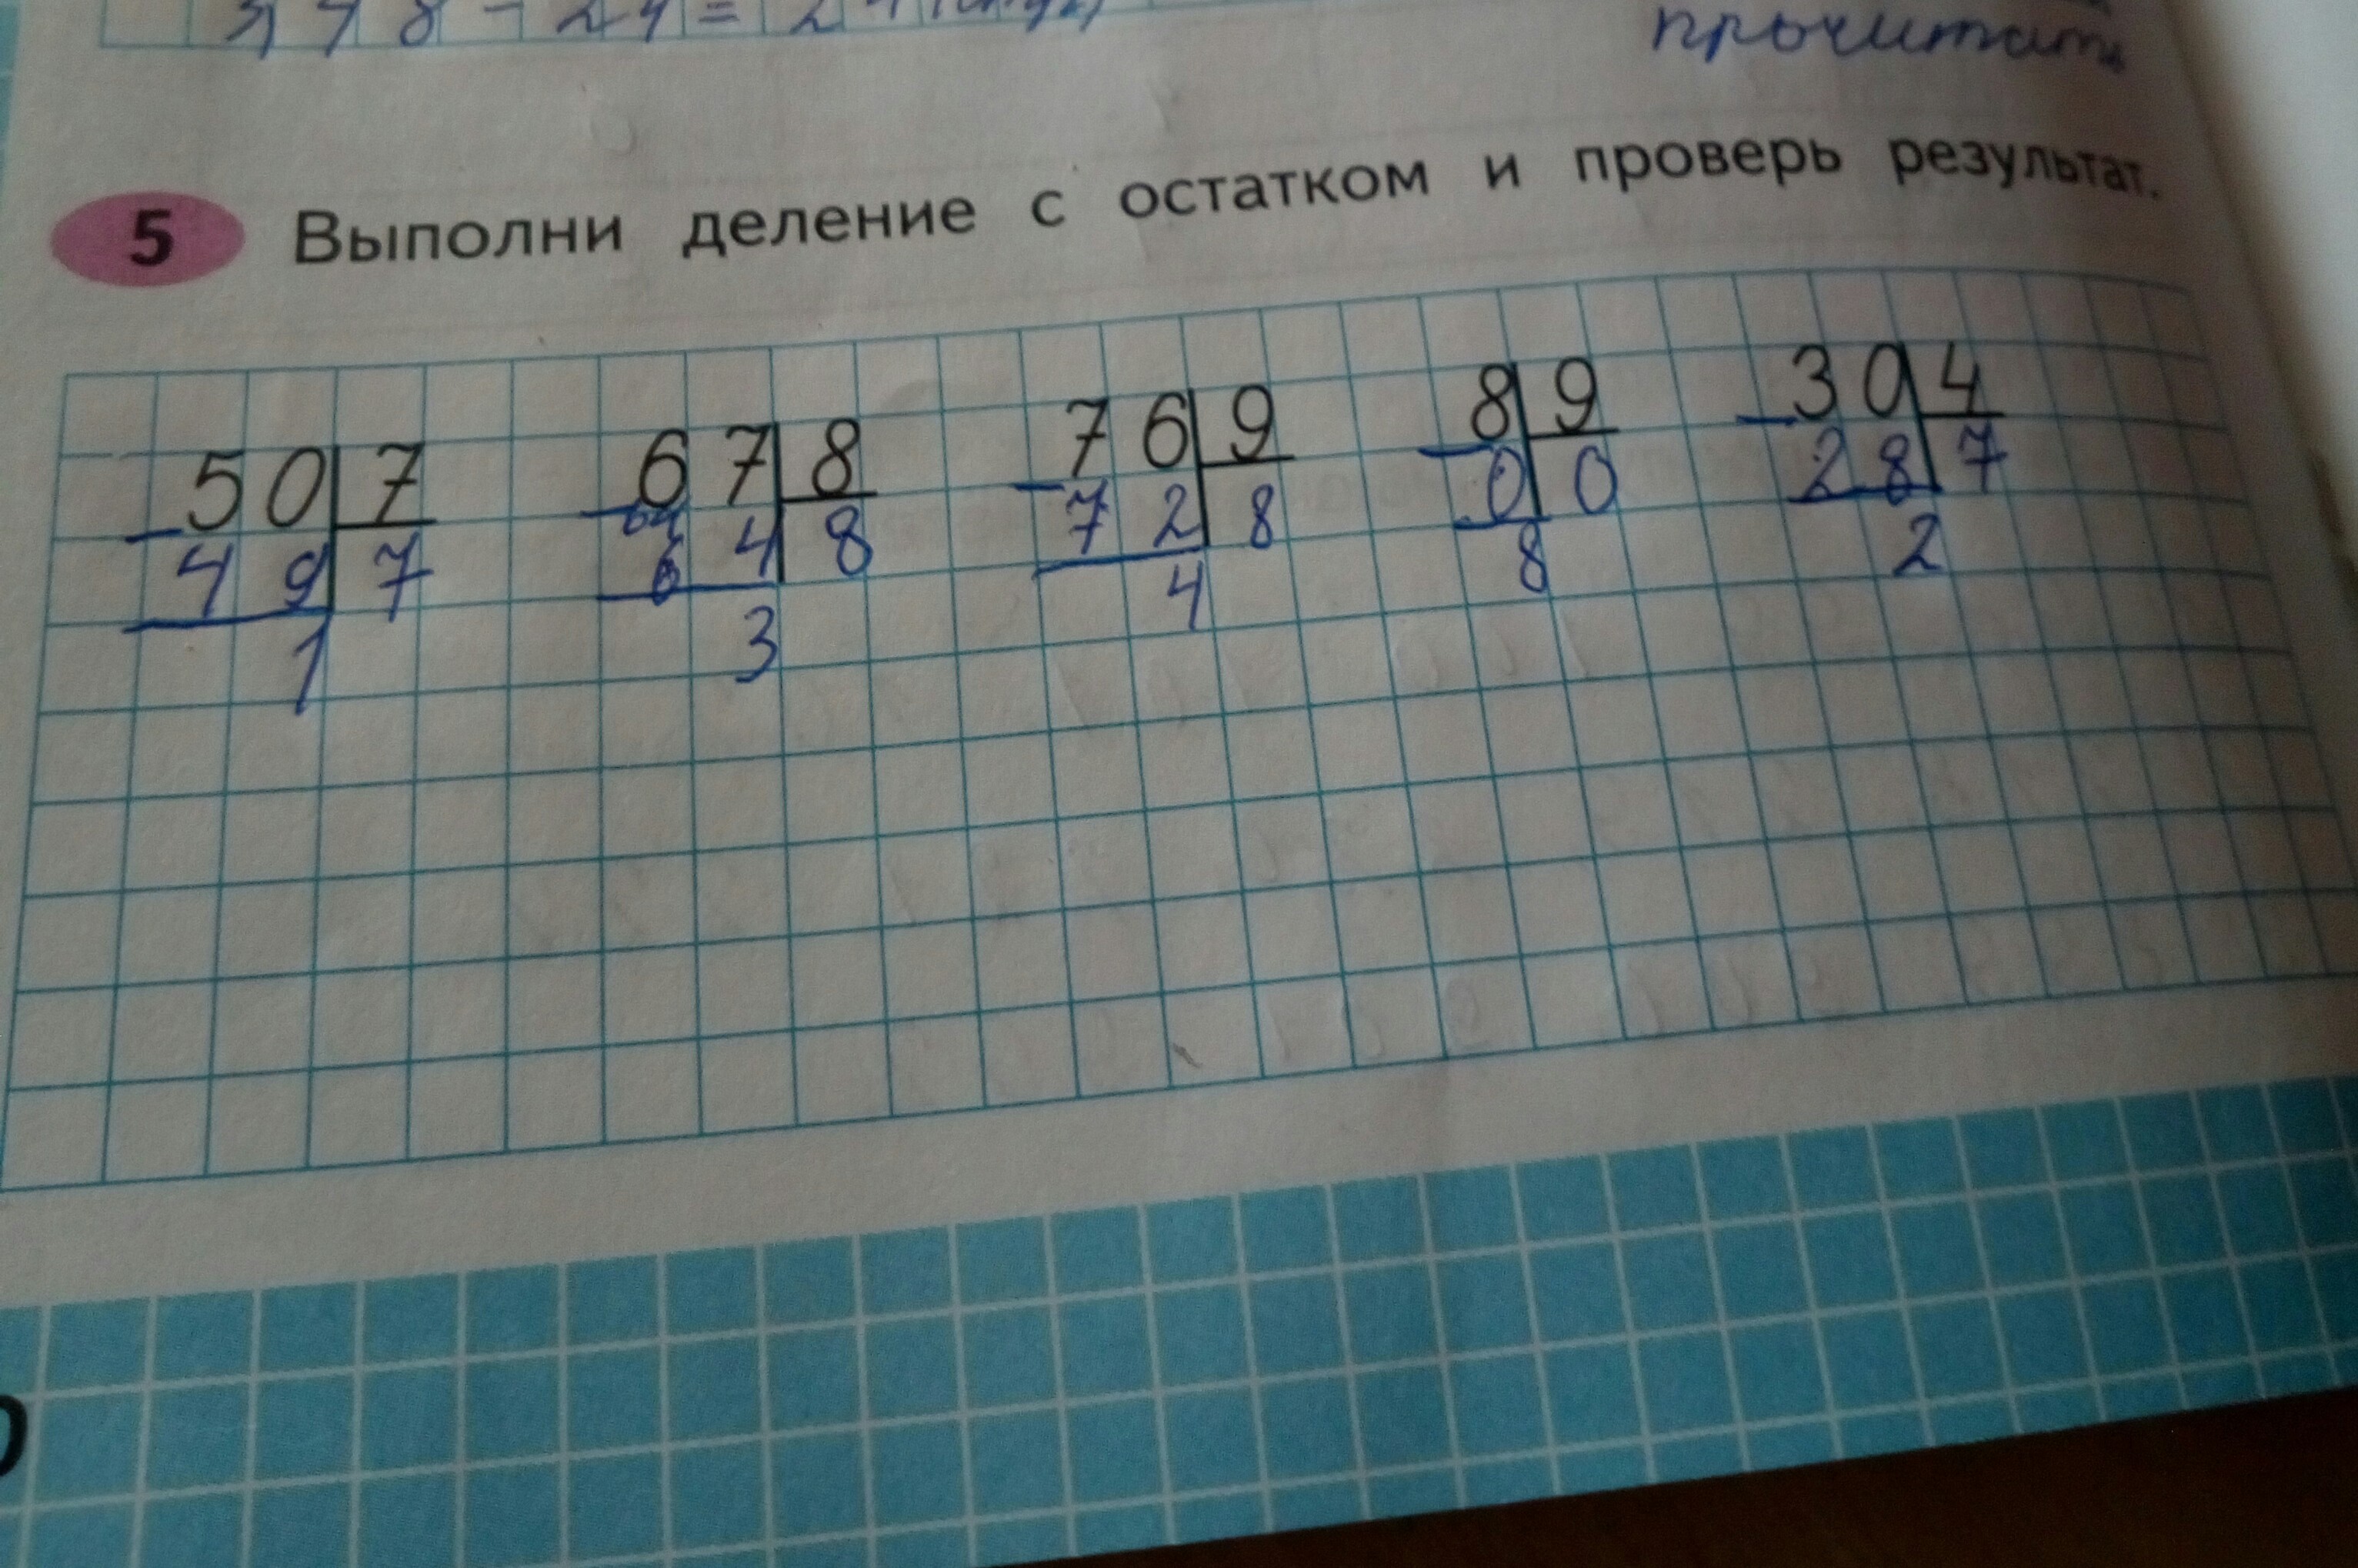 прочитать
5 Выполни деление с остатком и проверь результат.
50 7 67 8 76 9 8 9 30 4
49 7 64 8 72 8 0 0 28 7
1 3 4 8 2